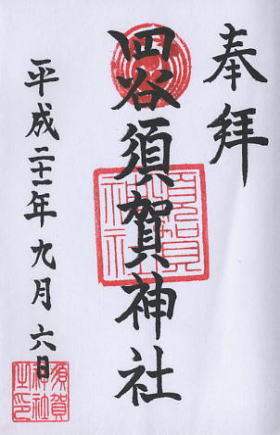 奉拝
四谷須賀神社
平成二十一年九月六日
須賀神社
須賀神社之印